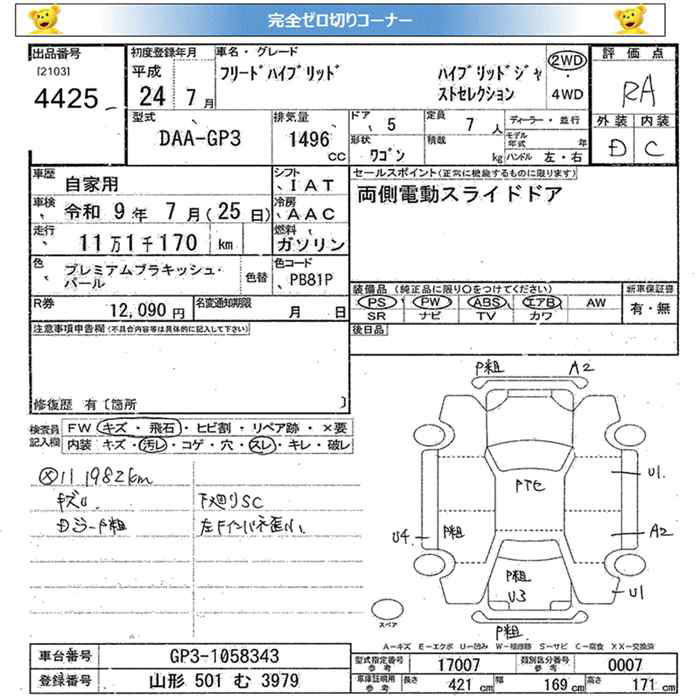 完全ゼロ切りコーナー
出品番号 初度登録年月 車名・グレード 評価点
[2103] 平成 フリードハイブリッド ハイブリッドジャ 2WD
4425 24年7月 ストセレクション 4WD RA
型式 排気量 ドア 定員 ディーラー・並行 外装 内装
DAA-GP3 1496 CC 5 7人 モデル年式 年
形状 ワゴン 積載 kg ハンドル 左・右 D C
車歴 自家用 シフト IAT セールスポイント(正常に機能するものに限ります)
車検 令和 9年 7月(25日) 冷房 AAC 両側電動スライドドア
走行 11万1千170 km 燃料 ガソリン
色 プレミアムブラキッシュ・パール 色替 色コード PB81P
装備品(純正品に限り○をつけてください) 新車保証書
R券 12,090円 名変通知期限 月 日 PS PW ABS エアB AW 有・無
SR ナビ TV カワ
注意事項申告欄(不具合内容等は具体的に記入して下さい) 後日品
修復歴 有〔箇所 〕
検査員記入欄 FW キズ・飛石・ヒビ割・リペア跡・×要
内装 キズ・汚レ・コゲ・穴・スレ・キレ・破レ
P粗 A2
111982km
キズU 下廻りSC
Dミラー P粗
U1
PTセ
U4 P粗 A2
P粗
U3 U1
スペア P粗
A-キズ E-エクボ U-凹み W-補修跡 S-サビ C-腐食 XX-交換済
車台番号 GP3-1058343 型式指定番号 参考 17007 類別区分番号 参考 0007
登録番号 山形 501 む 3979 車体証明用 参考 長さ 421 cm 幅 169 cm 高さ 171 cm